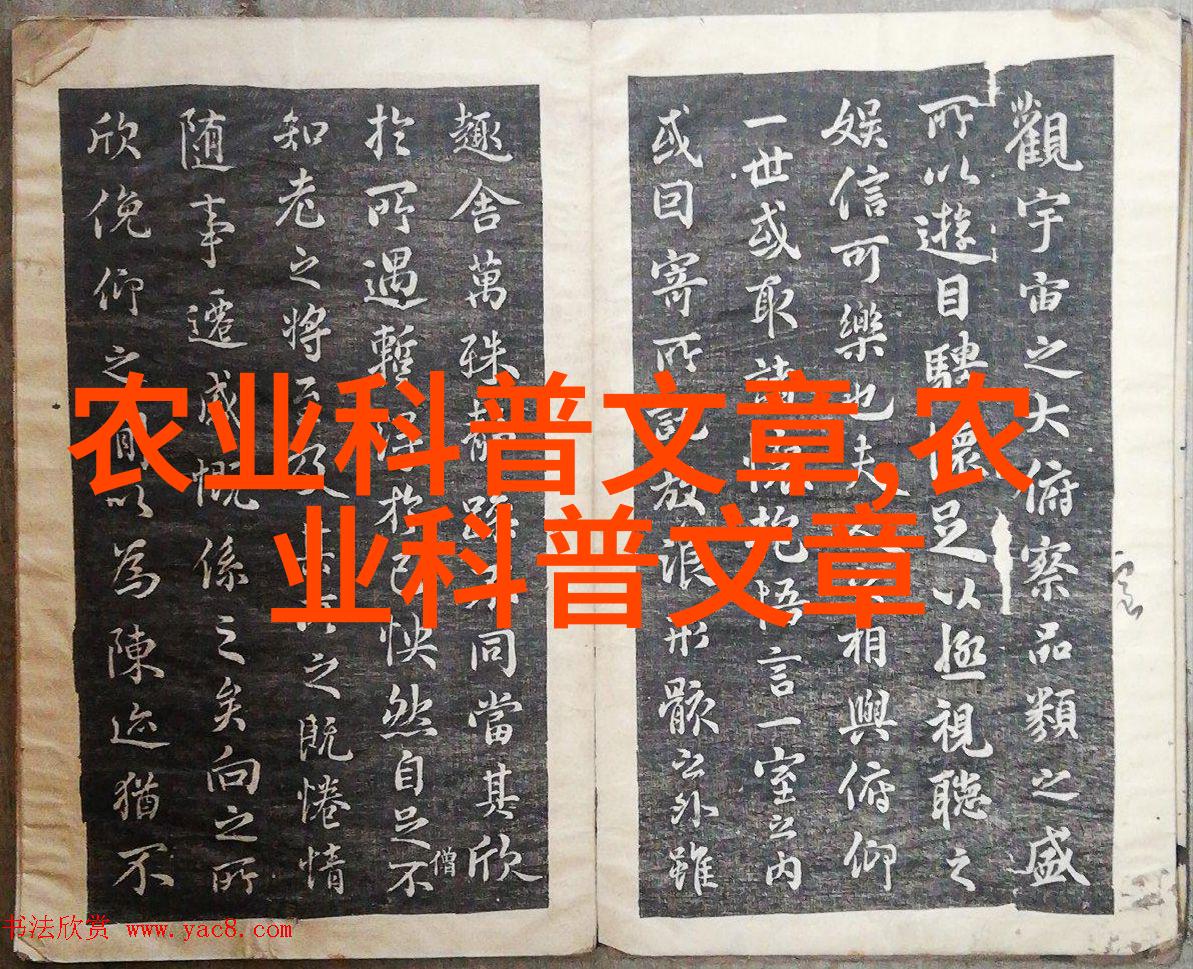 觀宇宙之大俯察品類之盛
所以遊目騁懷足以極視聽之
娱信可樂也夫
相與俯仰
一世或取諸
抱悟言一室之内
或因寄所託放浪形骸之外雖
趣舍萬殊静躁不同當其欣
於所遇暫得於己怏然自足不
僧
知老之將至及
之既惓情
随事遷感慨係之矣向之所
欣俛仰之
以為陳迹猶不
农业科普文章,农
业科普文章
书法欣赏 www.yac8.com